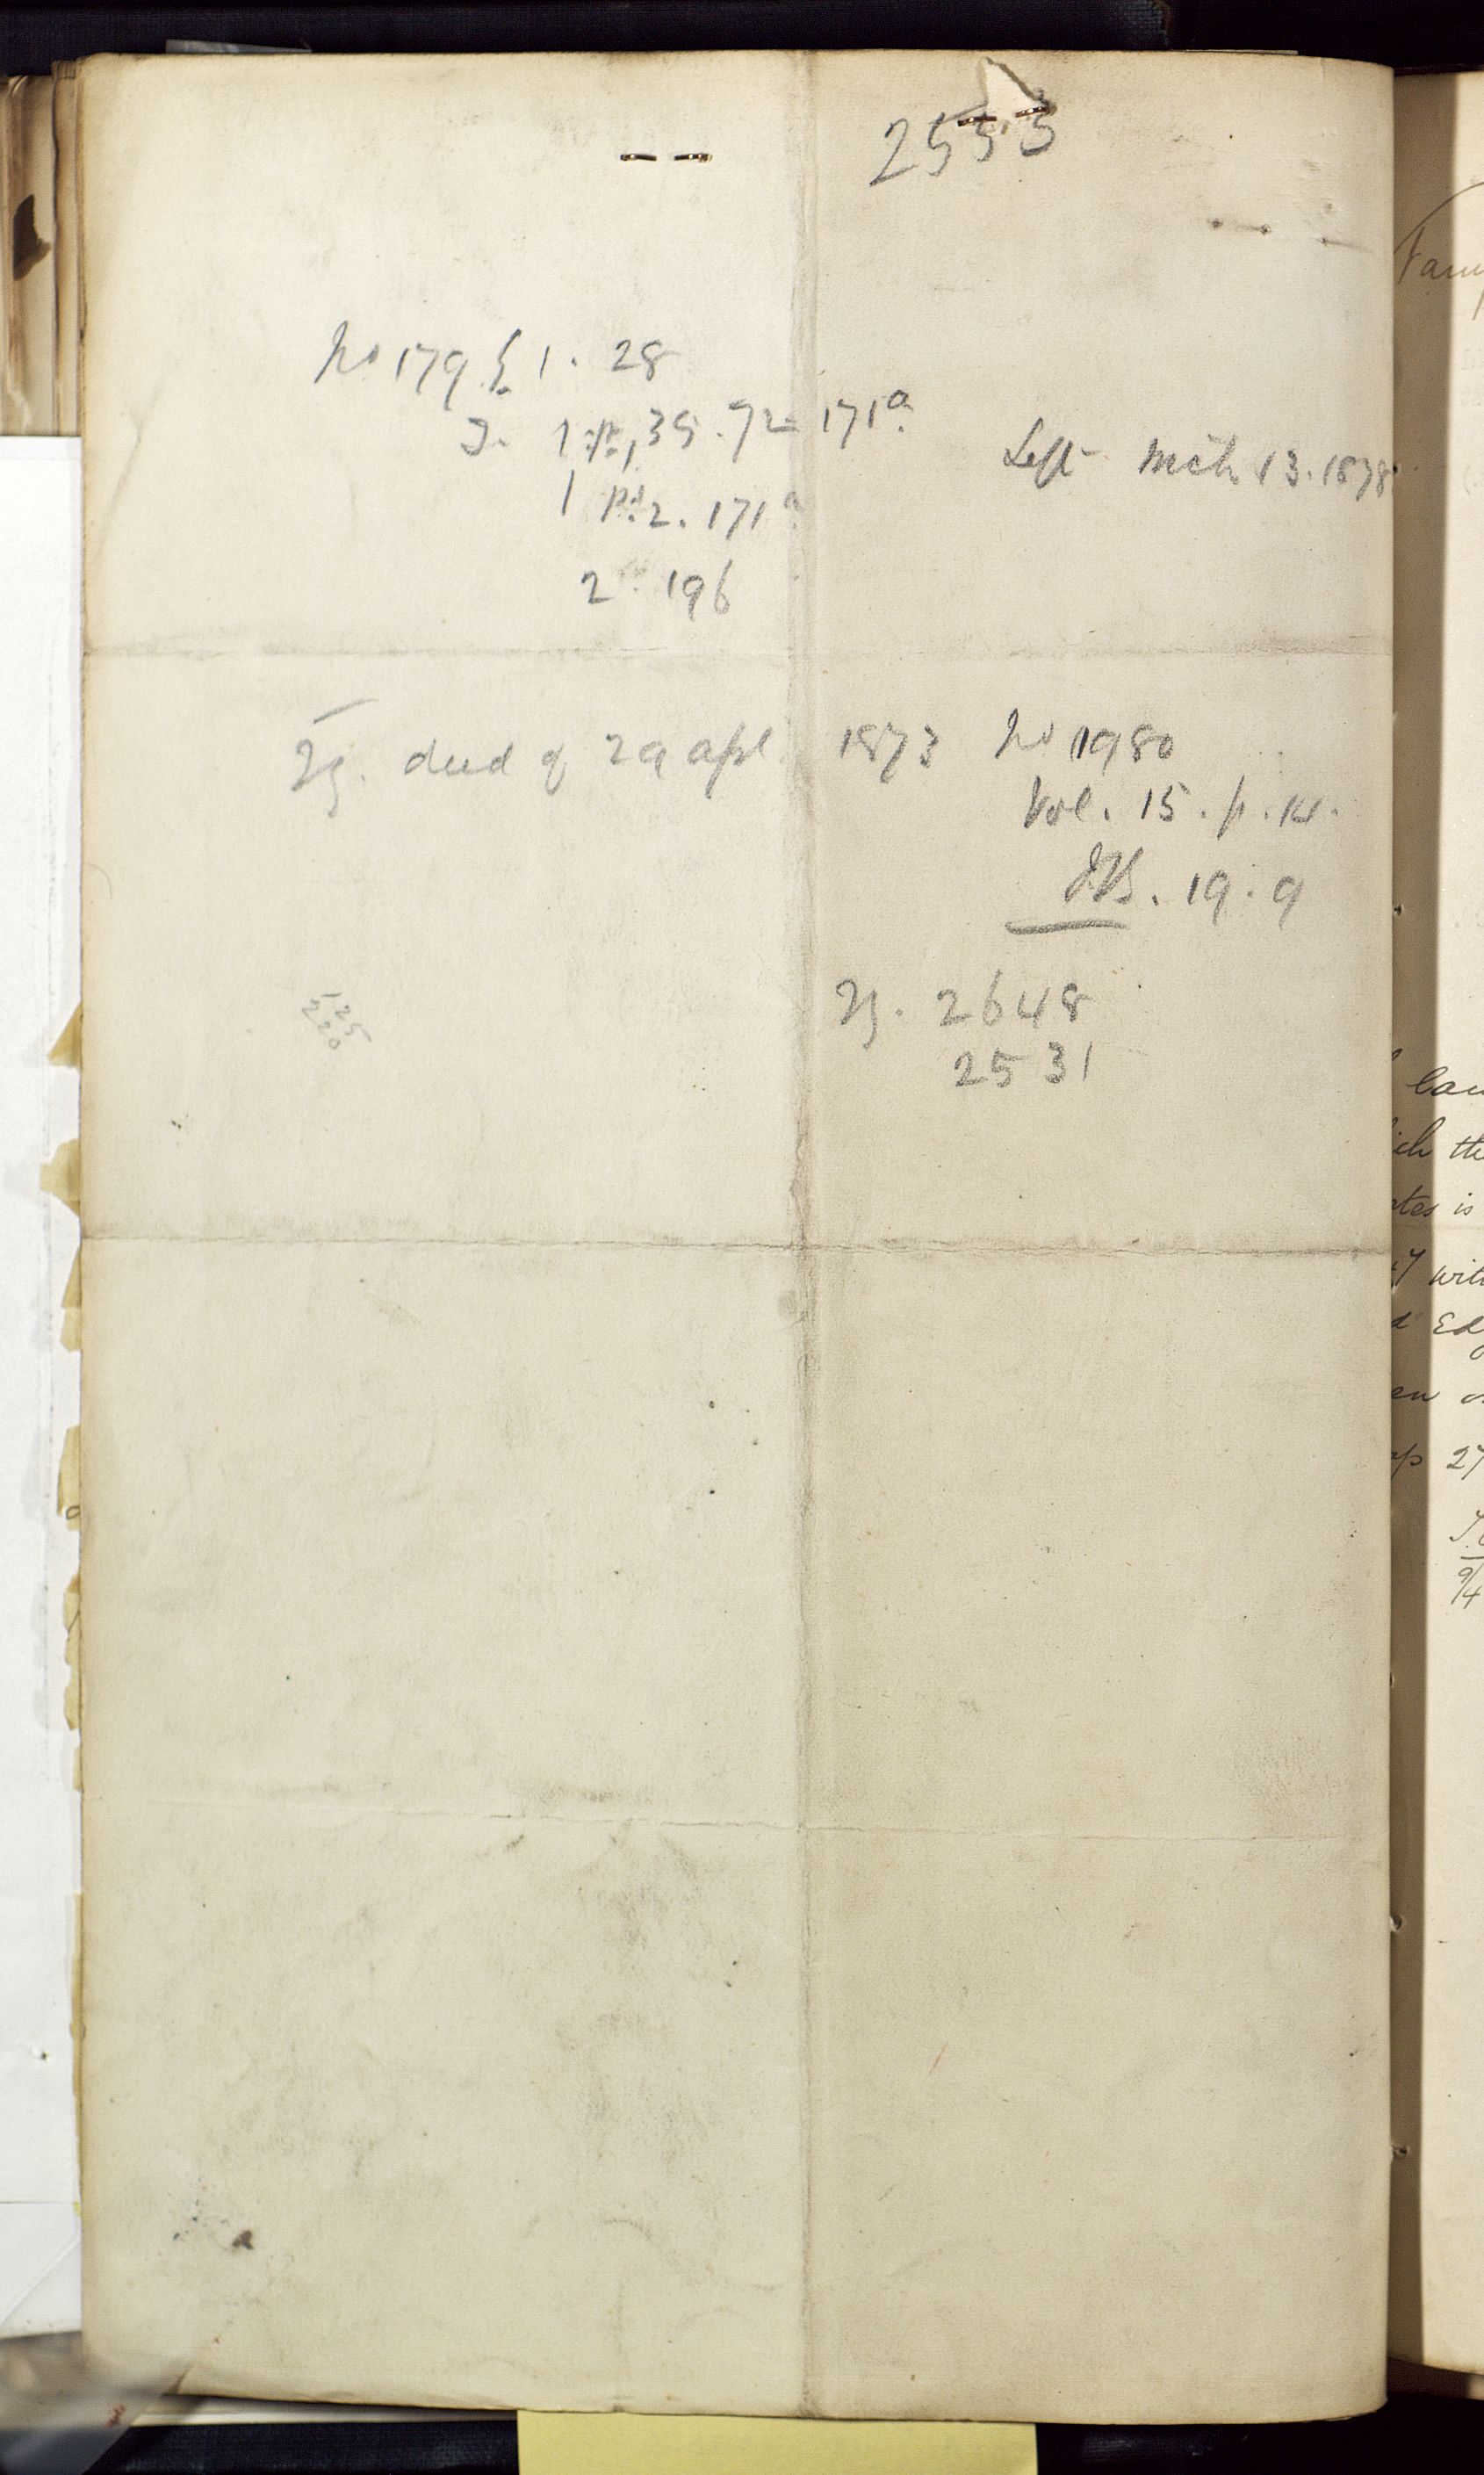 2553
No 179 & 1. 28
J. 1 pt, 35. 72 = 171a
1 pt. 2. 171a
2. 196
Left Mch 13. 1878
deed of 29 Apl 1873 No 1980
Vol. 15. p. 14.
19. 9
2648
2531
125
220